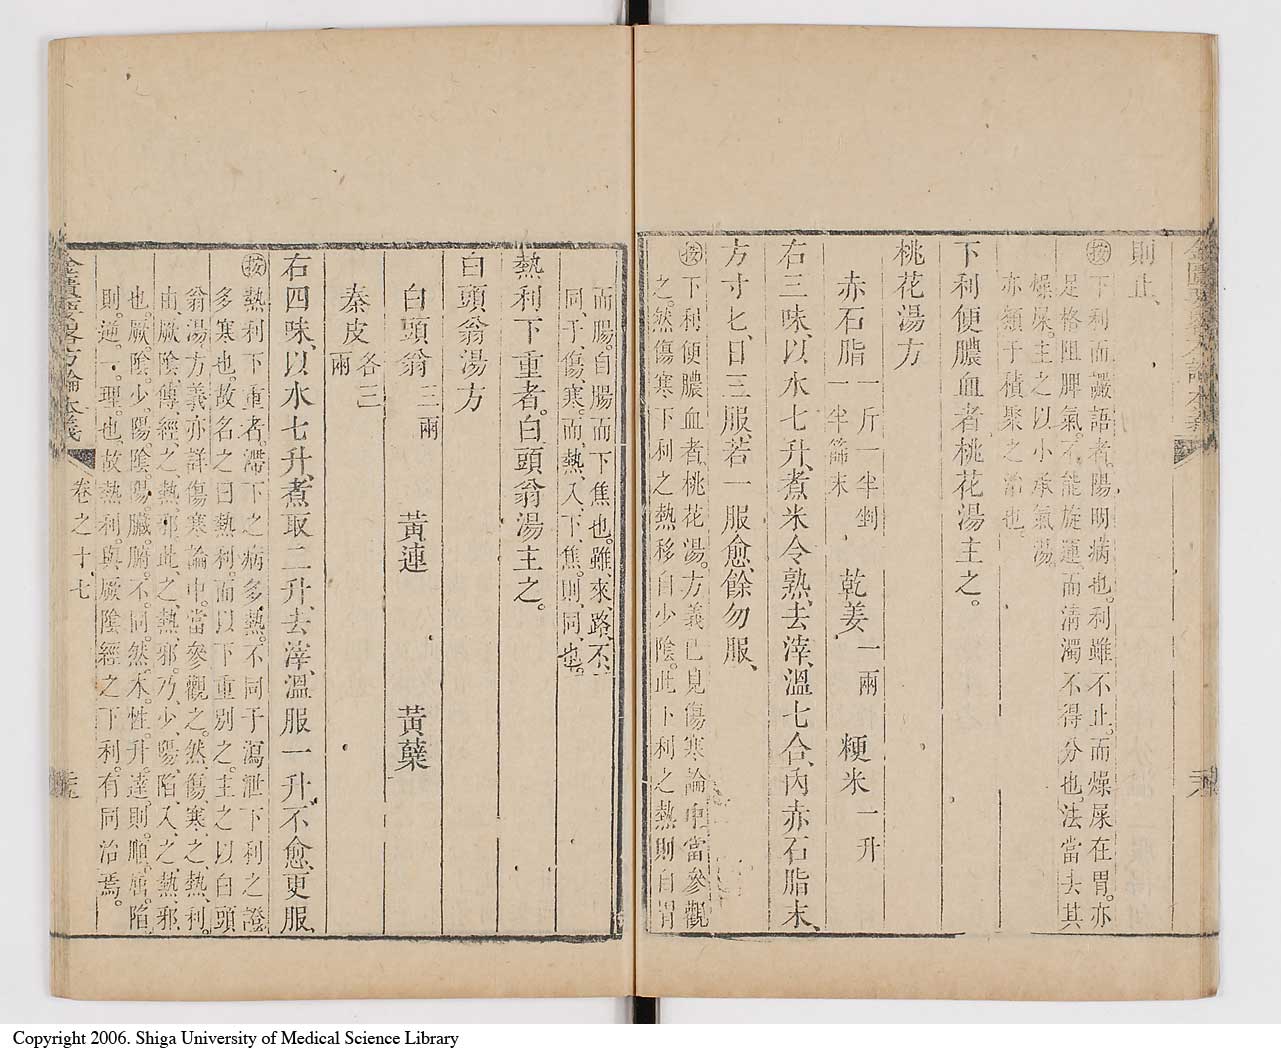 則止、
按下利而讝語者。陽明病也。利雖不止。而燥屎在胃。亦
足格阻脾氣。不能旋運。而清濁不得分也。法當去其
燥屎。主之以小承氣湯。
亦類于積聚之治也。
下利便膿血者桃花湯主之。
桃花湯方
赤石脂一斤一半剉一半篩末 乾姜一兩 粳米一升
右三味、以水七升、煮米令熟、去滓、溫七合、內赤石脂末、
方寸匕、日三服、若一服愈、餘勿服、
按下利便膿血者、桃花湯。方義已見傷寒論中當參觀
之。然傷寒下利之熱移自少陰。此下利之熱則自胃
而腸。自腸而下焦也。雖、來路、不、
同、于、傷寒。而、熱、入、下、焦。則、同、也。
熱利下重者。白頭翁湯主之。
白頭翁湯方
白頭翁三兩 黃連 黃蘗
秦皮各三兩
右四味、以水七升、煮取二升、去滓、溫服一升、不愈、更服、
按熱利下重者、滯下之病多熱。不同于瀉泄下利之證
多寒也。故名之曰熱利。而以下重別之。主之以白頭
翁湯方義亦詳傷寒論中。當參觀之。然、傷、寒、之、熱、利。
由、厥、陰、傳經、之、熱、邪、此、之、熱、邪。乃、少、陽、陷、入、之、熱、邪、
也。厥、陰、少、陽、陰、陽、臟、腑。不、同。然、木、性。升、達、則。順、屈。陷、
則。逆。一。理。也、故、熱利。與厥陰經之下利。有同治焉。
金匱要略方論本義 卷之十七